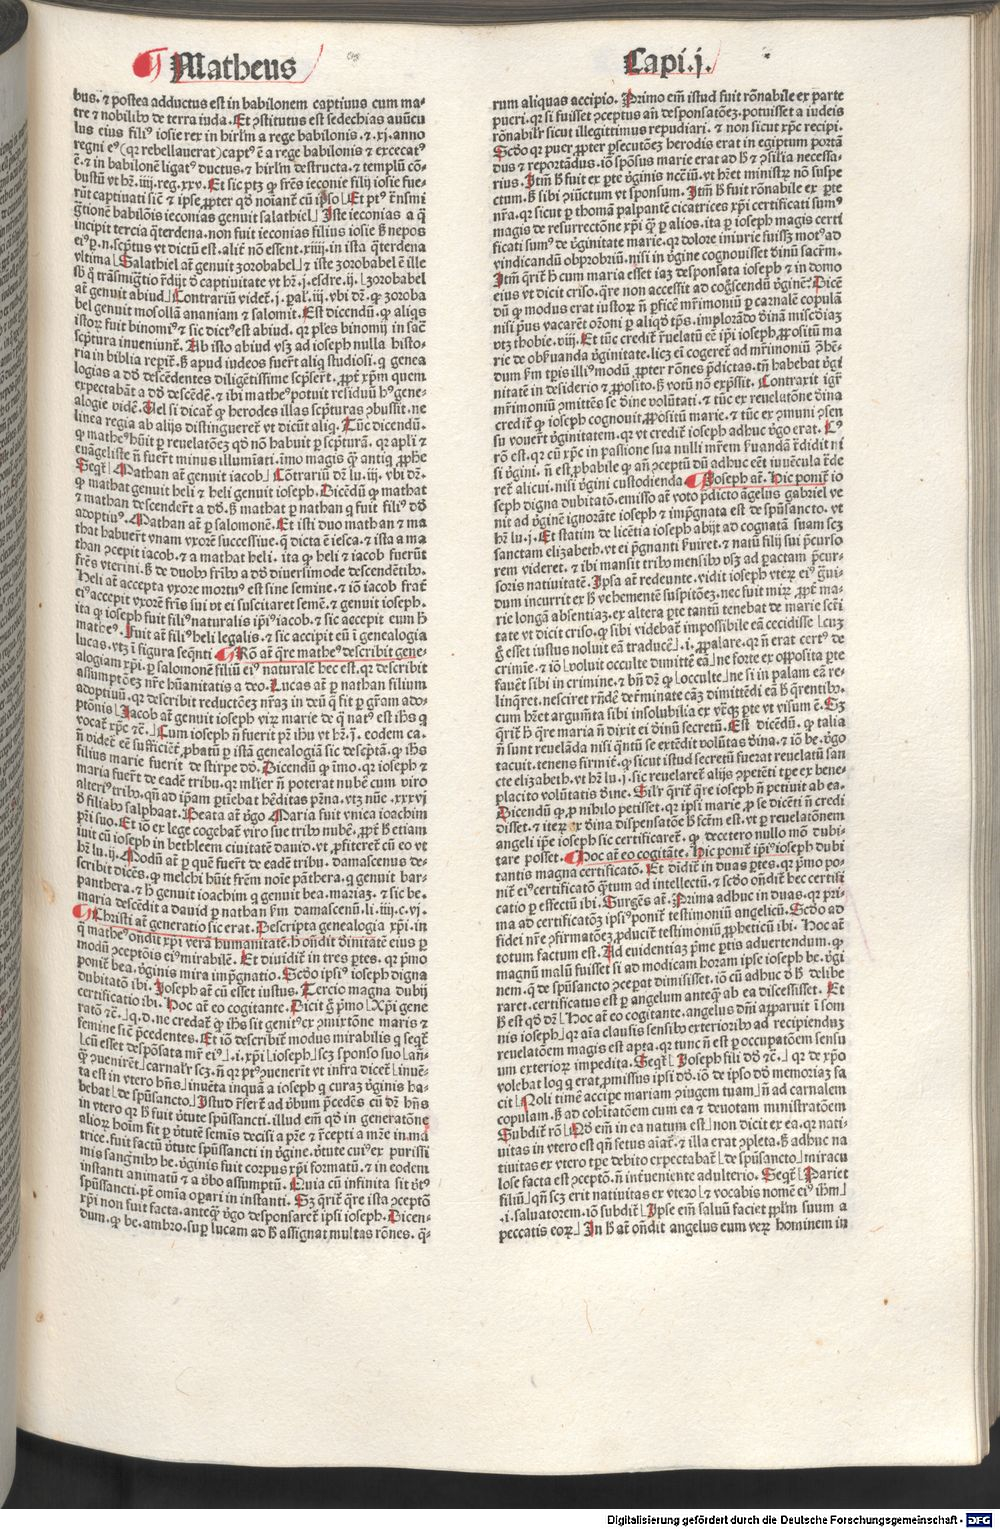 Matheus
Capi.j.
bus. ⁊ postea adductus est in babilonem captiuus cum ma-
tre ⁊ nobilibꝰ de terra iuda. Et ꝯstitutus est sedechias auūcu
lus eius filiꝰ iosie rex in hirlm̄ a rege babilonis. ⁊ .xj. anno
regni eiꝰ (qꝛ rebellauerat) captꝰ ē a rege babilonis ⁊ excecatꝰ
ē. ⁊ in babilonē ligatꝰ ductus. ⁊ hirlm̄ destructa. ⁊ templū cō-
bustū vt hr̄. iiij. reg. xxv. Et sic ptꝫ ꝙ fr̄es ieconie filij iosie fue-
gr̄tione babilōis ieconias genuit salathiel Iste ieconias a q̄
incipit tercia q̄terdena. non fuit ieconias filius iosie sꝫ nepos
eiꝰ ꝑ. n. scriptus vt dictū est. alit̄ nō essent .xiiij. in ista q̄terdena
vltima Salathiel aūt genuit zorobabel ⁊ iste zorobabel ē ille
at̄ genuit abiud. Contrariū videt̄. j. paral. iij. vbi dr̄. ꝙ zoroba
bel genuit mosollā ananiam ⁊ salomit. Est dicendū. ꝙ aliqs
scriptura inueniunt̄. Ab isto abiud vsꝫ ad ioseph nulla histo-
ria in biblia reperit̄. sꝫ apud iudeos fuer̄t aliq̄ studiosi. q̄ genea
logias a dd̄ descēdentes diligētissime scripser̄t. ꝓpt̄ xp̄m quem
expectabāt a dd̄ descēde. ⁊ ibi matheꝰ potuit residuū hꝰ gene-
alogie videre. Vel si dicat̄ ꝙ herodes illas scripturas ꝯbussit. ne
linea regia ab alijs distingueret̄ vt dicūt aliq̄. Tūc dicendū.
ꝙ matheꝰ hūit ꝑ reuelatōeꝫ qd̄ nō habuit ꝑ scripturā. qꝛ apl̄i ⁊
euāgeliste nō fuer̄t minus illumīati. īmo magis q̄ antiqi ꝓphe
Seqt̄ Mathan at̄ genuit iacob Contrariū dr̄ lu. iij. vbi dr̄.
ꝙ mathat genuit heli ⁊ heli genuit ioseph. Dicēdū ꝙ mathat
⁊ mathan descender̄t a dd̄. sꝫ mathat ꝑ nathan q̄ fuit filiꝰ dd̄
adoptiuꝰ. Mathan at̄ ꝑ salomonē. Et isti duo mathan ⁊ ma
that habuer̄t vnam vxorē successiue. q̄ dicta ē iesca. ⁊ ista a ma
than ꝯcepit iacob. ⁊ a mathat heli. ita ꝙ heli ⁊ iacob fuerūt
fr̄es vterini. sꝫ de duobꝰ fr̄ibꝰ a dd̄ diuersimode descendētibꝰ.
Heli at̄ accepta vxore mortuꝰ est sine semine. ⁊ iō iacob frat̄
eiꝰ accepit vxorē fr̄is sui vt ei suscitaret semē. ⁊ genuit ioseph.
ita ꝙ ioseph fuit filiꝰ naturalis ip̄iꝰ iacob. ⁊ sic accepit eum hꝰ
matheꝰ. Fuit at̄ filiꝰ heli legalis. ⁊ sic accipit eū ī genealogia
lucas. vtꝫ ī figura seq̄nti ¶ Rō at̄ q̄re matheꝰ describit gene-
alogiam xp̄i. ꝑ salomonē filiū eiꝰ naturalē hec est. qꝛ describit
assumptōeꝫ nr̄e hūanitatis a deo. Lucas at̄ ꝑ nathan filium
adoptiuū. qꝛ describit reductōeꝫ nr̄aꝫ in deū q̄ fit ꝑ gr̄am ado-
ptōnis Jacob at̄ genuit ioseph virꝝ marie de q̄ natꝰ est ihs̄ q̄
vocat̄ xp̄c ⁊c̄. Cum ioseph nō fuerit pr̄ ihū vt hr̄. j. eodem ca.
filius marie fuerit de stirpe dd̄. Dicendū ꝙ īmo. qꝛ ioseph ⁊
maria fuer̄t de eadē tribu. qꝛ mlier nō poterat nubē cum viro
alteriꝰ tribꝰ. qn̄ ad ip̄am ꝑtinebat hēditas pr̄na. vtꝫ nūe. xxxvj
d̄ filiabꝰ salphaat. Beata at̄ v̄go Maria fuit vnica ioachim
pr̄i suo. Et iō ex lege cogebat̄ viro sue tribꝰ nubē. ꝓpt̄ hꝰ etiam
iuit cū ioseph in bethleem ciuitatē dauid. vt ꝓfiteret̄ cū eo vt
hr̄ lu. ij. Modū at̄ ꝑ quē fuer̄t de eadē tribu. damascenus de-
scribit dicēs. ꝙ melchi hūit frēm noīe pāthera. q̄ genuit bar-
panthera. ⁊ hꝰ genuit ioachim q̄ genuit bea. mariaꝫ. ⁊ sic be.
maria descēdit a dauid ꝑ nathan ẜm damascenū. li. iiij. c. vj.
¶ Christi at̄ generatio sic erat. Descripta genealogia xp̄i. in
q̄ matheꝰ ondit xp̄i verā humanitatē. hꝰ ondit diuinitatē eius ꝑ
modū ꝯceptōis eiꝰ mirabilē. Et diuidit̄ in tres ꝑtes. qꝛ pͥmo
ponit̄ bea. v̄ginis mira imp̄gnatio. Scd̄o ip̄iꝰ ioseph digna
dubitatō ibi. Joseph at̄ cū esset iustus. Tercio magna dubij
certificatio ibi. Hoc at̄ eo cogitante. Dicit g̊ pͥmo Xp̄i gene
ratō ⁊c̄. q. d. ne credat̄ ꝙ ihs̄ sit genitꝰ ex ꝯmixtōne maris ⁊
femine sicut p̄cedentes. Et iō describit̄ modus mirabilis q̄ seqt̄
cū esset despōsata mr̄ eiꝰ .i. xp̄i ioseph scꝫ sponso suo an̄-
q̄ ꝯuenirēt carnalit̄ scꝫ. nō qꝛ ptꝰ ꝯuenerit vt infra dicet̄ inuē-
ta est in vtero hn̄s inuēta inquā a ioseph q̄ curaꝫ v̄ginis ha-
bebat de spūsancto. Istud nō refert̄ ad v̄bum p̄cedēs cū dr̄ hn̄s
in vtero qꝛ hꝰ fuit v̄tute spūssancti. illud em̄ qd̄ in generatōne
alioꝝ hoīm fit ꝑ v̄tutē semīs decisi a pr̄e ⁊ recepti a mr̄e in ma
trice. fuit factū v̄tute spūssancti in v̄gine. v̄tute cuiꝰ ex purissi
mis sanguibꝰ be. v̄ginis fuit corpus xp̄i formatū. ⁊ in eodem
instanti animatū ⁊ a v̄bo assumptū. Quia cū infinita sit v̄tꝰ
spūssancti. pt̄ omīa oꝑari in instanti. Sꝫ q̄rit̄ q̄re ista ꝯceptō
xp̄i non fuit facta. anteq̄ v̄go desponsaret̄ ipsi ioseph. Dicen-
dum. ꝙ be. ambro. suꝑ lucam ad hꝰ assignat multas rōnes. q̄-
rum aliquas accipio. Primo em̄ istud fuit rōnabile ex parte
pueri. qꝛ si fuisset ꝯceptus an̄ desponsatōeꝫ. potuisset a iudeis
rōnabilit̄ sicut illegittimus repudiari. ⁊ non sicut xp̄c recipi.
Scd̄o qꝛ puer ꝓpter ꝑsecutōeꝫ herodis erat in egiptum portā
dus ⁊ reportādus. iō spōsus marie erat ad hꝰ ⁊ ꝯsilia necessa-
rius. Itm̄ hꝰ fuit ex ꝑte v̄ginis ncc̄iū. vt hr̄et ministꝝ nō suspe
ctum. sꝫ sibi ꝯiūctum vt sponsum. Itm̄ hꝰ fuit rōnabile ex ꝑte
nr̄a. qꝛ sicut ꝑ thomā palpantē cicatrices xp̄i certificati sumꝰ
magis de resurrectōne xp̄i q̄ ꝑ alios. ita ꝑ ioseph magis certi
ficati sumꝰ de v̄ginitate marie. qꝛ dolore iniurie fuissꝫ motꝰ ad
vindicandū obprobriū. nisi in v̄gine cognouisset diuinū sacrm̄.
Itm̄ q̄rit̄ hꝰ cum maria esset iaꝫ desponsata ioseph ⁊ in domo
eius vt dicit criso. q̄re non accessit ad cognoscendū v̄ginē. Dicē
dū ꝙ modus erat iustoꝝ nō ꝑficē mr̄imoniū ꝑ carnalē copulā
nisi prius vacarēt ororōni ꝑ aliqd̄ tp̄s. implorādo diuinā mīscdiaꝫ
vtꝫ thobie. viij. Et tūc credit̄ reuelatū eē ip̄i ioseph. ꝓpositū ma
rie de obseruanda v̄ginitate. licꝫ eī cogeret̄ ad mr̄imoniū ꝯtrahē-
dum ẜm tp̄is illiꝰ modū ꝓpter rōnes p̄dictas. tn̄ habebat v̄gi
nitatē in desiderio ⁊ ꝓposito. sꝫ votū nō exp̄ssit. Contraxit igr̄
mr̄imoniū ꝯmittēs se diuine volūtati. ⁊ tūc ex reuelatōne diuina
credit̄ ꝙ ioseph cognouit ꝓpositū marie. ⁊ tūc ex ꝯmuni ꝯsen
su vouer̄t v̄ginitatem. qꝛ vt credit̄ ioseph adhuc v̄go erat. Cꝰ
rō est. qꝛ cū xp̄c in passione sua nulli mr̄em seruandā tradidit ni
si v̄gini. nō est ꝓbabile ꝙ an̄ ꝯceptū dū adhuc eēt iuuēcula trade
ret̄ alicui. nisi v̄gini custodienda ¶ Joseph at̄. Hic ponit̄ io
seph digna dubitatō. emisso at̄ voto p̄dicto āgelus gabriel ve
nit ad v̄ginē ignorāte ioseph ⁊ imp̄gnata est de spūsancto. vt
hr̄ lu. j. Et statim de licētia ioseph abijt ad cognatā suam scꝫ
sanctam elizabeth. vt ei p̄gnanti seruiret. ⁊ natū filij sui p̄curso
rem videret. ⁊ ibi mansit tribꝰ mensibꝰ vsꝫ ad partum p̄cur-
soris natiuitatē. Ipsa at̄ redeunte. vidit ioseph vteꝝ eiꝰ grauī-
dum incurrit ex hꝰ vehementē suspitōeꝫ. nec fuit miꝝ. ꝓpt̄ ma-
rie longā absentiaꝫ. ex altera ꝑte tantū tenebat̄ de marie scti
tate vt dicit criso. ꝙ sibi videbat̄ impossibile eā cecidisse cuꝫ
g̊ esset iustus noluit eā traducē .i. ꝓpalare. qꝛ nō erat certꝰ de
crimīe. ⁊ iō voluit occulte dimittē eā ne forte ex opposita ꝑte
fauēt sibi in crimine. ⁊ bn̄ dr̄ ꝙ occulte ne si in palam eā re-
linq̄ret. nesciret rn̄dē det̄minate cāꝫ dimittēdi eā hꝰ q̄rentibꝰ.
cum hr̄et argumta sibi insolubilia ex vtraqꝫ ꝑte vt visum ē. Sꝫ
q̄rit̄ hꝰ q̄re maria nō dixit ei diuinū secretū. Est dicēdū. ꝙ talia
nō sunt reuelāda nisi q̄ntū se extēdit volūtas diuina. ⁊ iō be. v̄go
tacuit. tenens firmit̄ ꝙ sicut istud secretū fuerat reuelatū san
cte elizabeth. vt hr̄ lu. j. sic reuelaret̄ alijs ꝯpetēti tp̄e ex bene-
placito volūtatis diuine. Silit̄ q̄rit̄ q̄re ioseph nō petiuit ab ea.
Dicendū ꝙ ꝓ nihilo petisset. qꝛ ipsi marie ꝓ se dicēti nō credi
disset. ⁊ iteꝝ ex diuina dispensatōe hꝰ factm̄ est. vt ꝑ reuelatōnem
angeli ip̄e ioseph sic certificaret̄. ꝙ decetero nullo mō dubi-
tare posset. ¶ Hoc at̄ eo cogitāte. Hic ponit̄ ip̄iꝰ ioseph dubi
tantis magna certificatō. Et diuidit̄ in duas ꝑtes. qꝛ pͥmo po-
nit̄ eiꝰ certificatō q̄ntum ad intellectū. ⁊ scd̄o ondit̄ bec certifi
catio ꝑ effectū ibi. Surgēs at̄. Prima adhuc in duas. qꝛ pri-
ma ad certificatōeꝫ ipsiꝰ ponit̄ testimoniū angelicū. Scd̄o ad
fidei nr̄e ꝯfirmatōeꝫ. ꝓducit̄ testimoniū ꝓpheticū ibi. Hoc at̄
totum factum est. Ad euidentiaꝫ pͥme ꝑtis aduertendum. ꝙ
magnū malū fuisset si ad modicam horam ipse ioseph be. v̄gi
nem. quā de spūsancto ꝯceperat dimisisset. iō cū adhuc de hꝰ delibe
raret. certificatus est ꝑ angelum anteq̄ ab ea discessisset. Et
hꝰ est qd̄ dr̄ Hoc at̄ eo cogitante. angelus dn̄i apparuit ī som
nis ioseph qꝛ aīa clausis sensibꝰ exterioribꝰ ad recipienduꝫ
reuelatōnem magis est apta. qꝛ tunc nō est ꝑ occupatōem sensu
um exterioꝝ impedita. Seqt̄ Joseph fili dd̄ ⁊c̄. qꝛ de xp̄o
volebat loq̄ q̄ erat ꝓmissus ipsi dd̄. iō de ipso dd̄ memoriaꝫ fa
cit Noli timē accipe mariam ꝯiugem tuam nō ad carnalem
copulam. sꝫ ad cohītatōem cum ea ⁊ deuotam ministratōem
Subdit̄ rō Qd̄ em̄ in ea natum est non dicit ex ea. qꝛ nati-
uitas in vtero est qn̄ fetus aīat̄. ⁊ illa erat ꝯpleta. sꝫ adhuc na
tiuitas ex vtero tp̄e debito expectabat̄ de spūsancto miracu
lose facta est ꝯceptō. nō interueniente adulterio. Seqt̄ Pariet
filiū qn̄ scꝫ erit natiuitas ex vtero ⁊ vocabis nomē eiꝰ ihm̄
.i. saluatorem. iō subdit̄ Ipse em̄ saluū faciet ppl̄m suum a
peccatis eoꝝ In hꝰ at̄ ondit angelus eum veꝝ hominem in
Digitalisierung gefördert durch die Deutsche Forschungsgemeinschaft - DFG